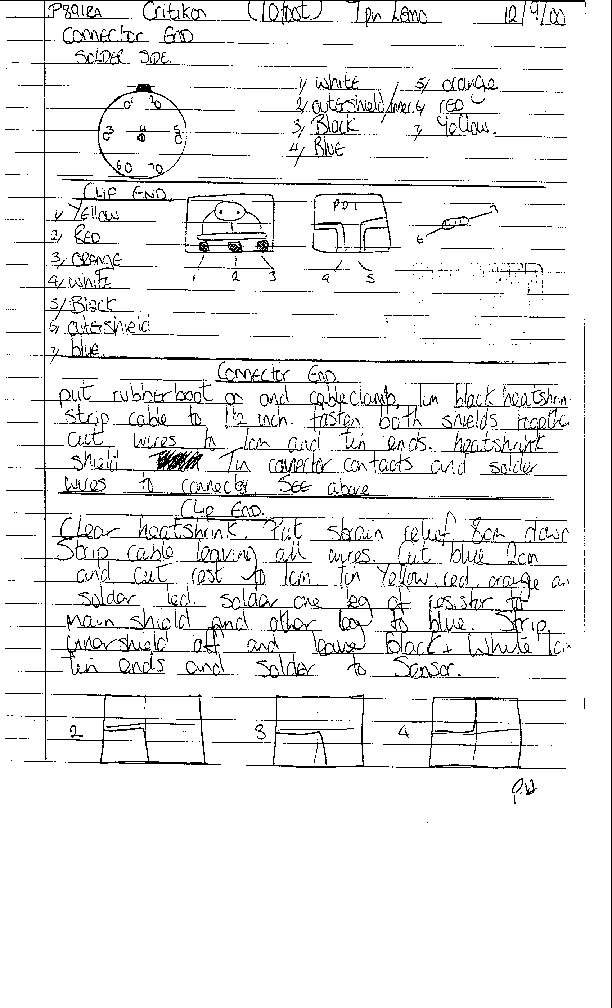 P891RA Critikon (10foot) 7pin Lemo 12/9/00
CONNECTOR END
SOLDER SIDE.
1/ white / 5/ orange
2/ outershield/inner. 6/ RED
3/ Black 7/ Yellow.
4/ Blue
10 20
30 40 50
60 70
CLIP END.
1/ Yellow
2/ RED
3/ ORANGE
4/ white
5/ Black
6/ outershield
7/ blue.
PD1
1 2 3 4 5 6 7
Connector End.
put rubberboot on and cableclamp, 1cm black heatshrin
strip cable to 1 1/2 inch. fasten both shields
cut wires to 1cm and tin ends. heatshrink
shield Tin connector contacts and solder
wires to connector. SEE above
Clip END.
Clear heatshrink. Put strain relief 8cm down
Strip cable leaving all wires. Cut blue 2cm
and cut rest to 1cm Tin Yellow, red, orange an
solder led. solder one leg of resistor to
main shield and other leg to blue. Strip
innershield off and leave Black + White 1c
tin ends and solder to Sensor.
2 3 4